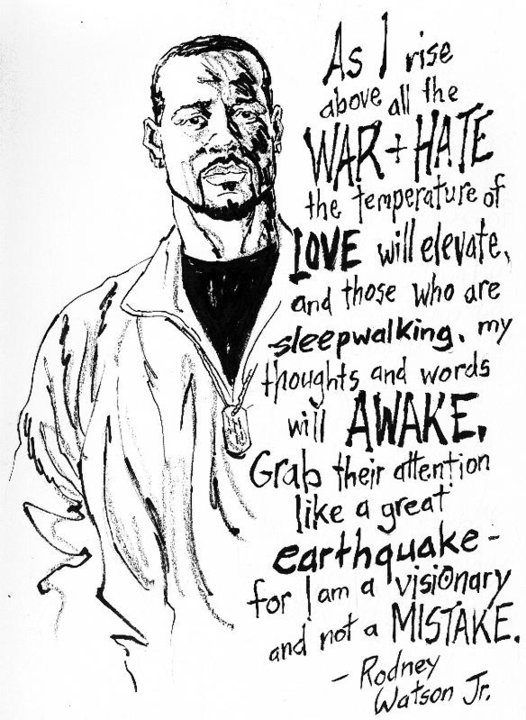 As I rise
above all the
WAR + HATE
the temperature of
LOVE will elevate,
and those who are
sleepwalking, my
thoughts and words
will AWAKE.
Grab their attention
like a great
earthquake -
for I am a visionary
and not a MISTAKE.
- Rodney
Watson Jr.